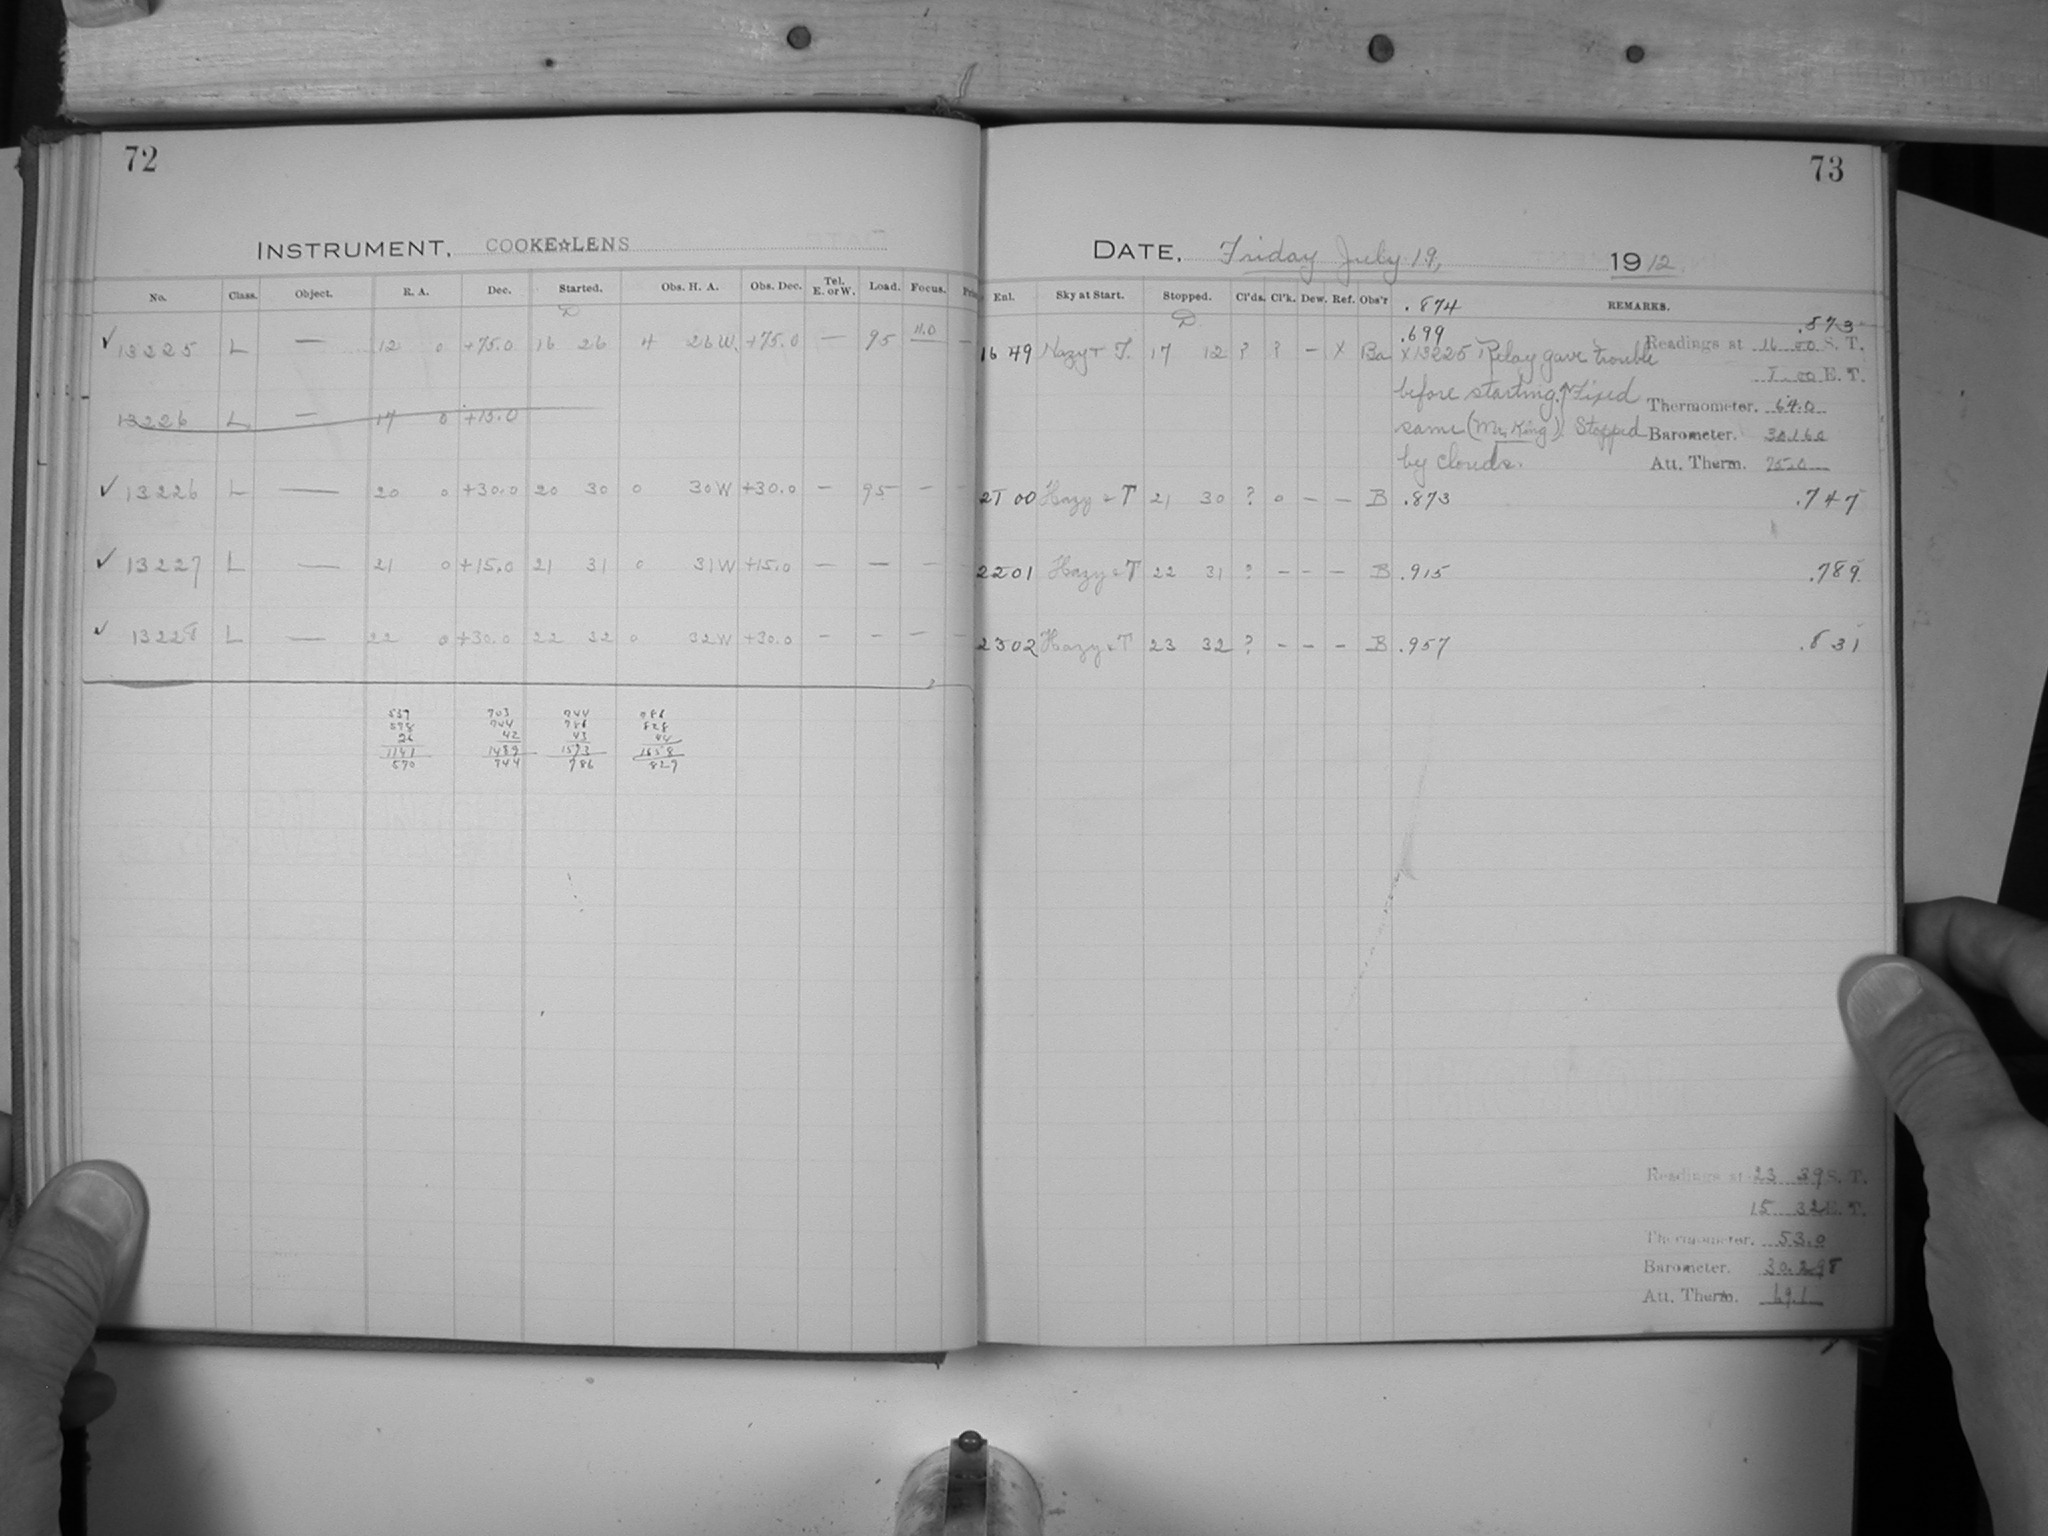 72
INSTRUMENT, COOKE☆LENS
No. Class. Object. R. A. Dec. Started. Obs. H. A. Obs. Dec. Tel. E. or W. Load. Focus.
D
✓ 13225 L — 12 0 +75.0 16 26 4 26 W. +75.0 — 95 11.0 —
13226 L — 17 0 +15.0
✓ 13226 L — 20 0 +30.0 20 30 0 30 W +30.0 — 95 — —
✓ 13227 L — 21 0 +15.0 21 31 0 31 W +15.0 — — — —
✓ 13228 L — 22 0 +30.0 22 32 0 32 W +30.0 — — — —
703 744
744 786 828
26 42 43 44
1141 1489 1573 1658
570 744 786 829
73
DATE, Friday July 19, 1912
Enl. Sky at Start. Stopped. Cl'ds. Cl'k. Dew. Ref. Obs'r .874 REMARKS.
D .699 .573
16 49 Hazy + T. 17 12 ? ? — X Ba X 13225 Relay gave trouble Readings at 16 00 S. T.
00 E. T.
before starting. Fixed Thermometer. 64.0
same (Mr. King). Stopped Barometer. 30.160
by clouds. Att. Therm. 75.0
21 00 Hazy & T 21 30 ? 0 — — B .873 .747
22 01 Hazy & T 22 31 ? — — — B .915 .789
23 02 Hazy & T 23 32 ? — — — B .957 .831
Readings at 23 39 S. T.
15 32 E. T.
Thermometer. 53.0
Barometer. 30.298
Att. Therm. 69.1